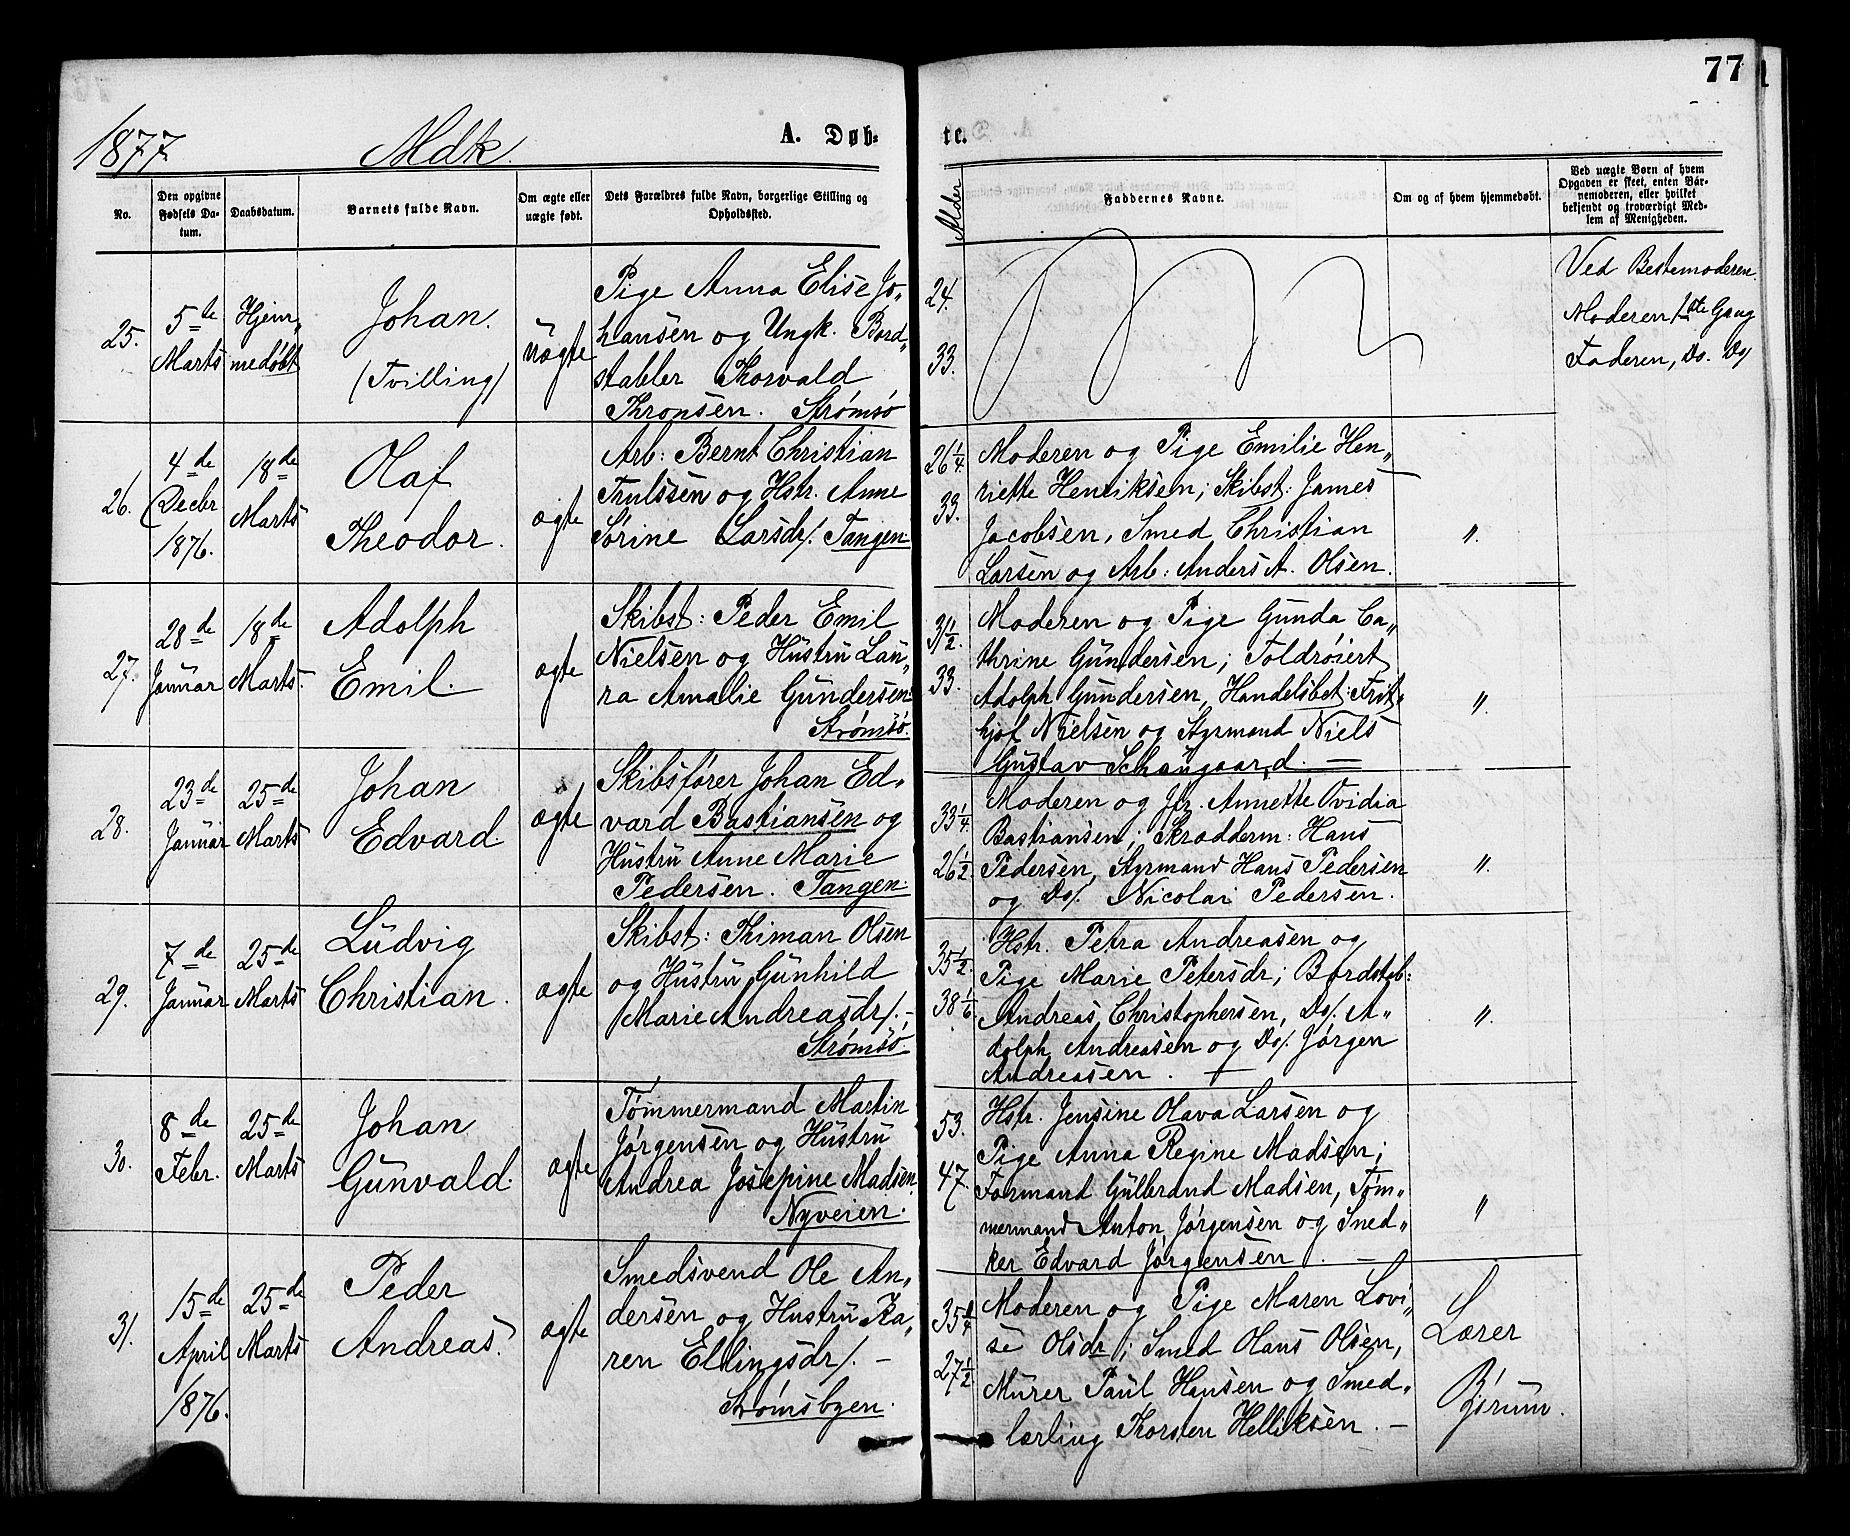 77
1877 Mdk. A. Døb- te.
No.
Den opgivne
Fødsels Da-
tum.
Daabsdatum.
Barnets fulde Navn.
Om ægte eller
uægte født.
Dets Forældres fulde Navn, borgerlige Stilling og
Opholdssted.
Alder
Faddernes Navne.
Om og af hvem hjemmedøbt.
Ved uægte Børn af hvem
Opgaven er skeet, enten Bar-
nemoderen, eller hvilket
bekjendt og troværdigt Med-
lem af Menigheden.
25.
5te
Marts
Hjem-
medøbt
Johan.
(Tvilling)
uægte
Pige Anna Elise Jo-
hansen og Ungk. Bord-
stabler Thorvald
Thronsen. Strømsø
24.
33.
Ved Bestemoderen
Moderen 1ste Gang
Faderen, Do. Do/
26.
4de
Decbr
1876.
18de
Marts
Olaf
Theodor.
ægte
Arb: Bernt Christian
Trulssen og Hstr. Anne
Sørine Larsdr/. Tangen
26 1/4
33.
Moderen og Pige Emilie Hen-
riette Henriksen; Skibst: James
Jacobsen, Smed Christian
Larsen og Arb: Anders A. Olsen.
".
27.
28de
Januar
18de
Marts.
Adolph
Emil.
ægte
Skibst: Peder Emil
Nielsen og Hustru Lau-
ra Amalie Gundersen.
Strømsø.
31 1/2.
33.
Moderen og Pige Gunda Ca-
thrine Gundersen; Toldrøiert
Adolph Gundersen, Handelsbet: Frit-
hjof Nielsen og Styrmand Niels
Gustav Schaugaard. —
".
28.
23de
Januar
25de
Marts
Johan
Edvard.
ægte
Skibsfører Johan Ed-
vard Bastiansen og
Hustru Anne Marie
Pedersen. Tangen.
33 1/4.
26 1/2
Moderen og Jfr. Annette Ovidia
Bastiansen; Skrædderm: Hans
Pedersen, Styrmand Hans Pedersen
og Do/. Nicolai Pedersen.
".
29.
7de
Januar
25de
Marts
Ludvig
Christian.
ægte
Skibst: Thiman Olsen
og Hustru Gunhild
Marie Andreasdr/. -
Strømsø
35 1/2.
38 1/6.
Hstr. Petra Andreasen og
Pige Marie Petersdr; Bordstab:
Andreas Christophersen, Do/. A-
dolph Andreasen og Do/. Jørgen
Andreasen. —
".
30.
8de
Febr.
25de
Marts
Johan
Gunvald.
ægte
Tømmermand Martin
Jørgensen og Hustru
Andrea Josepine Madsen.
Nyveien.
53.
47.
Hstr. Jensine Olava Larsen og
Pige Anna Regine Madsen;
Formand Gulbrand Madsen, Tøm-
mermand Anton Jørgensen og Sned-
ker Edvard Jørgensen. —
"
31.
15de
April
1876.
25de
Marts
Peder
Andreas.
ægte
Smedsvend Ole An-
dersen og Hustru Ka-
ren Ellingsdr/. -
Strømsbyen.
27 1/2
Moderen og Pige Maren Lovi-
se Olsdr; Smed Hans Olsen,
Murer Paul Hansen og Smed-
lærling Thorsten Helliksen. -
Lærer
Bjørum.